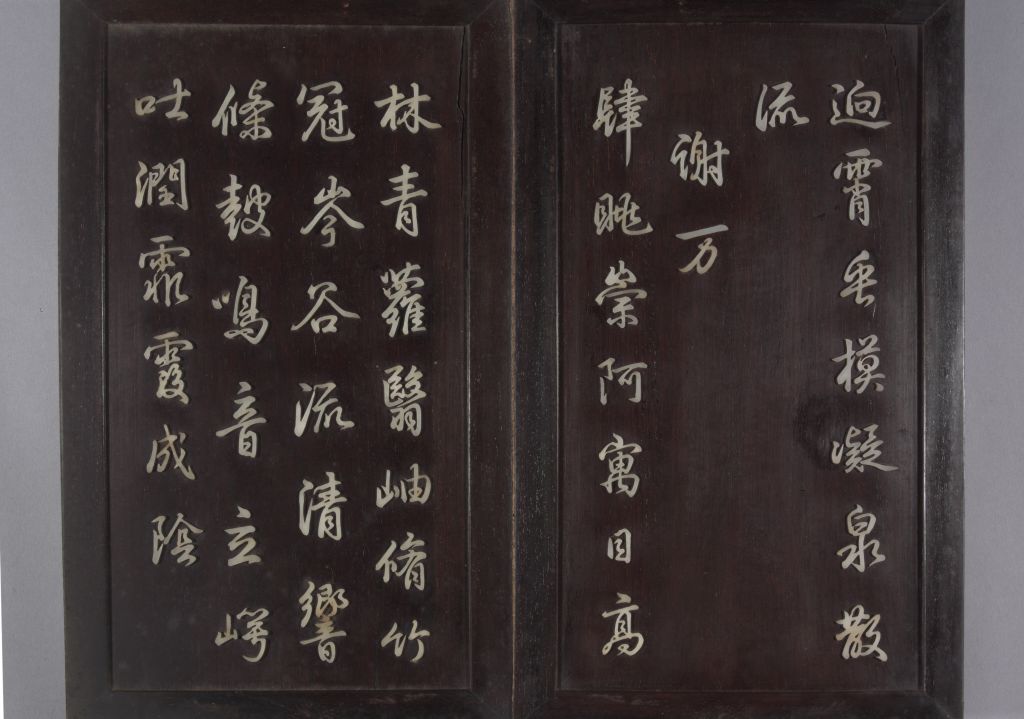 逈霄垂模凝泉散
流
謝万
肆眺崇阿寓目高
林青蘿翳岫脩竹
冠岑谷流清響
條鼓鳴音玄崿
吐潤霏霞成陰